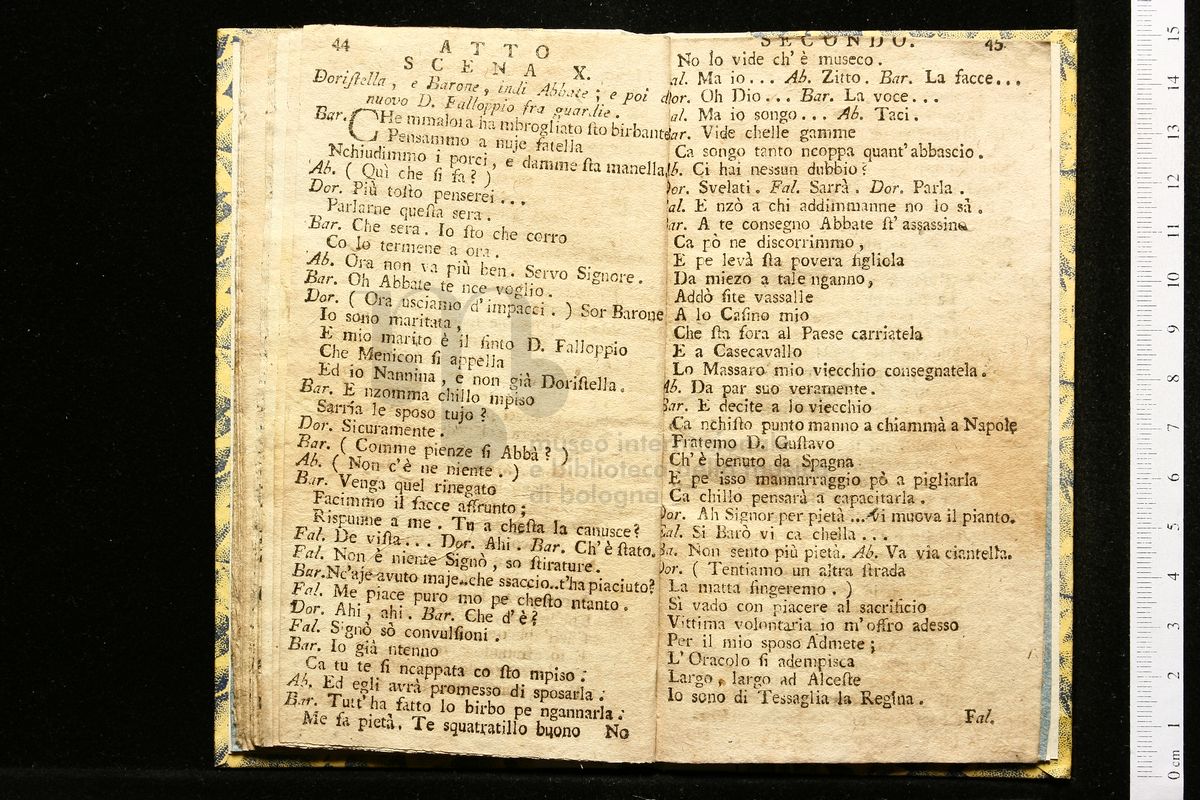 44
ATTO
SCENA X.
Doriſtella, e Barone, indi Abbate; e poi di
nuovo D. Falloppio fra guardie.
Bar. CHe mmalora ha mbrogliato ſto birbante
Penſammo a nuje fatella
Nchiudimmo i porci, e damme ſta manella.
Ab. ( Quì che ſi fa? )
Dor. Più toſto penſerei...
Parlarne queſta ſera.
Bar. Che ſera. Io ſto che corro
Co lo termene a ora.
Ab. Ora non va più ben. Servo Signore.
Bar. Oh Abbate te nce voglio.
Dor. ( Ora uſciamo d'impacci. ) Sor Barone
Io sono maritata,
E mio marito è il finto D. Falloppio
Che Menicon ſi appella
Ed io Nannina, e non già Doriſtella.
Bar. E nzomma chillo mpiſo
Sarría le spoſo tujo?
Dor. Sicuramente.
Bar. ( Comme pienze ſi Abbà? )
Ab. ( Non c'è ne niente. )
Bar. Venga quel rinegato
Facimmo il facce affrunto;
Riſpunne a me. Tu a cheſta la canuſce?
Fal. De viſta... Dor. Ahi. Bar. Ch'è ſtato.
Fal. Non è niente Signò, ſo ſtirature.
Bar. Nc'aje avuto maje..che ssaccio..t'ha piaciuto?
Fal. Me piace puro mo pe cheſto ntanto.
Dor. Ahi, ahi. Bar. Che d'è?
Fal. Signò sò convulſioni.
Bar. Io già ntenno
Ca tu te ſi ncappata co ſto mpiſo:
Ab. Ed egli avrà promeſſo di ſposarla.
Bar. Tutt'ha fatto lo birbo pe ngannarla.
Me fa pietà. Te squatratillo buono
No
SECONDO. 45
No lo vide ch'è muſeco.
al. Ma io... Ab. Zitto. Bar. La facce...
Dor. Oh Dio... Bar. La voce...
al. Ma io songo... Ab. Taci.
Bar. Vide chelle gamme
Ca songo tanto ncoppa quant'abbaſcio.
Ab. Ci hai neſſun dubbio?
Dor. Svelati. Fal. Sarrà. Dor. Parla.
al. E nzò a chi addimmanne no lo sà.
Bar. A te conſegno Abbate ſt'aſſaſſino
Ca pò ne diſcorrimmo,
E pe levà ſta povera figliola
Da miezo a tale nganno,
Addò ſite vaſſalle
A lo Caſino mio
Che ſta fora al Paeſe carriatela
E a Caſecavallo
Lo Maſſaro mio viecchio conſegnatela.
Ab. Da par suo veramente.
Bar. E decite a lo viecchio
Ca nchiſto punto manno a chiammà a Napole
Fratemo D. Guſtavo
Ch'è benuto da Spagna
E pe iſſo mannarraggio pò a pigliarla
Ca chillo penſarà a capacitarla.
Dor. Ah Signor per pietà ... Vi muova il pianto.
Fal. Si Barò vi ca chella...
Ba. Non sento più pietà. Ab. Va via ciantella.
Dor. ( Tentiamo un altra ſtrada
La matta fingeremo. )
Sì vado con piacere al sacrificio
Vittima volontaria io m'offro adeſſo
Per il mio spoſo Admete;
L'Oracolo ſi adempiſca
Largo, largo ad Alceſte
Io sono di Teſſaglia la Regina.
Fal.
museo inter
e biblioteca
di bologna
0 cm 1 2 3 4 5 6 7 8 9 10 11 12 13 14 15